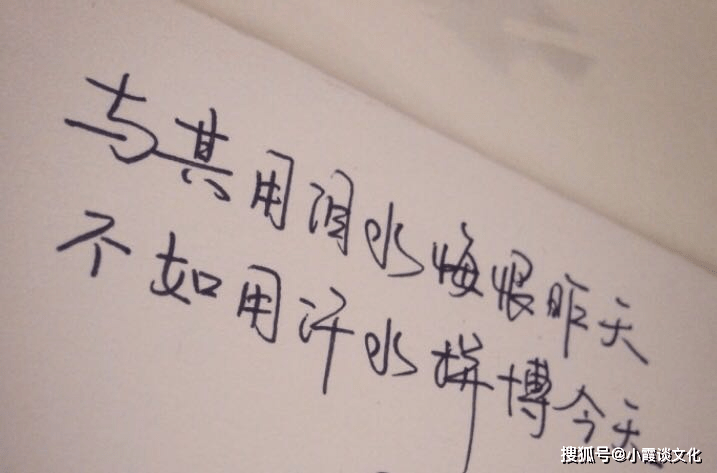 与其用泪水悔恨昨天
不如用汗水拼博今天
搜狐号@小霞谈文化